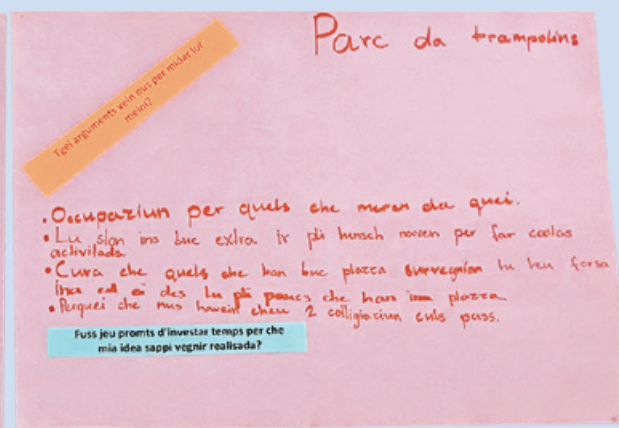 Parc da trampolins
Tgei arguments vein nus per midar lur
meini?
• Occupaziun per quels che meren da quei.
• Lu ston ins buc extra ir pli lunsch naven per far coolas
activitads.
• Cura che quels che han buc plazza survegnian lu leu forsa
ina ed ei des lu pli paucs che han ina plazza.
• Perquei che nus havein cheu 2 colligiaziun culs pass.
Fuss jeu promts d'investar temps per che
mia idea sappi vegnir realisada?